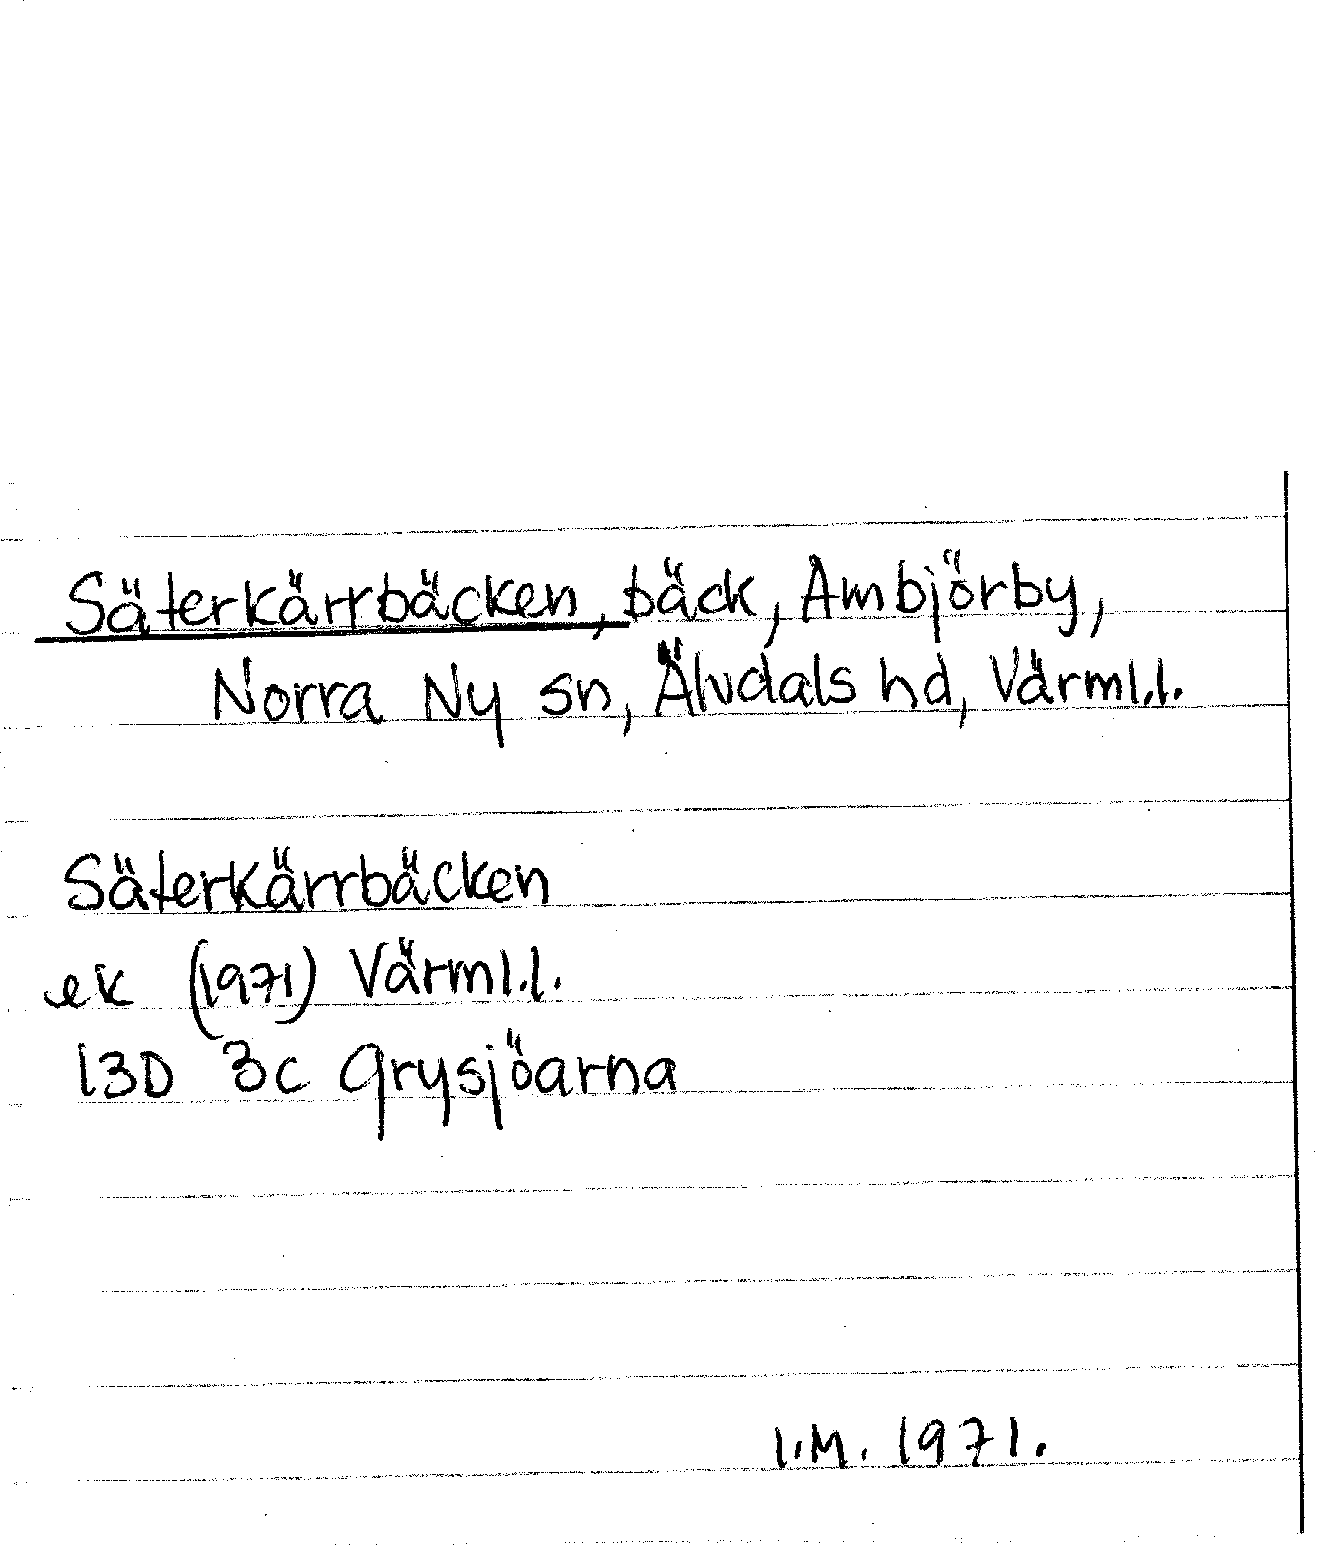 Säterkärrbäcken, bäck, Ambjörby,
Norra Ny sn, Älvdals hd, Värml.l.
Säterkärrbäcken
ek (1971) Värml.l.
13D 3c Grysjöarna
I.M. 1971.